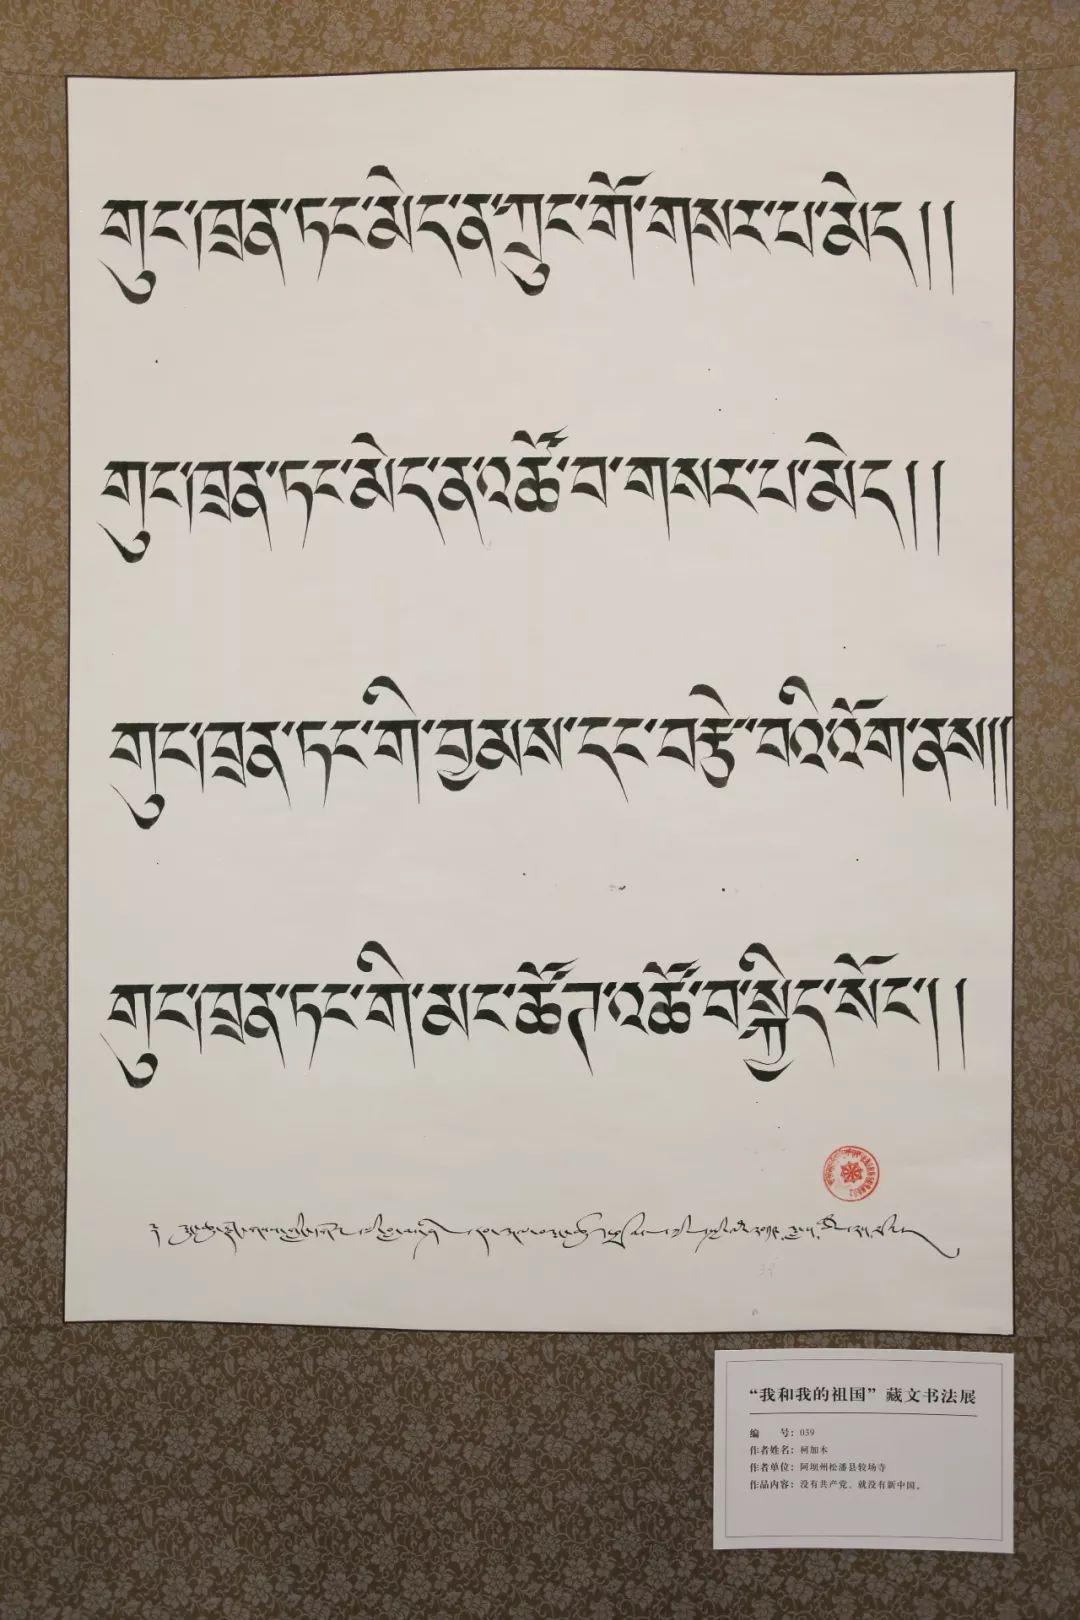 གུང་ཁྲན་ཏང་མེད་ན་ཀྲུང་གོ་གསར་པ་མེད།།
གུང་ཁྲན་ཏང་མེད་ན་འཚོ་བ་གསར་པ་མེད།།
གུང་ཁྲན་ཏང་གི་བྱམས་དང་བརྩེ་བའི་འོག་ནས།།
གུང་ཁྲན་ཏང་གི་མང་ཚོཊ་འཚོ་བ་སྐྱིད་སོང་།།
“我和我的祖国”藏文书法展
编 号：039
作者姓名：柯加木
作者单位：阿坝州松潘县较场寺
作品内容：没有共产党，就没有新中国。